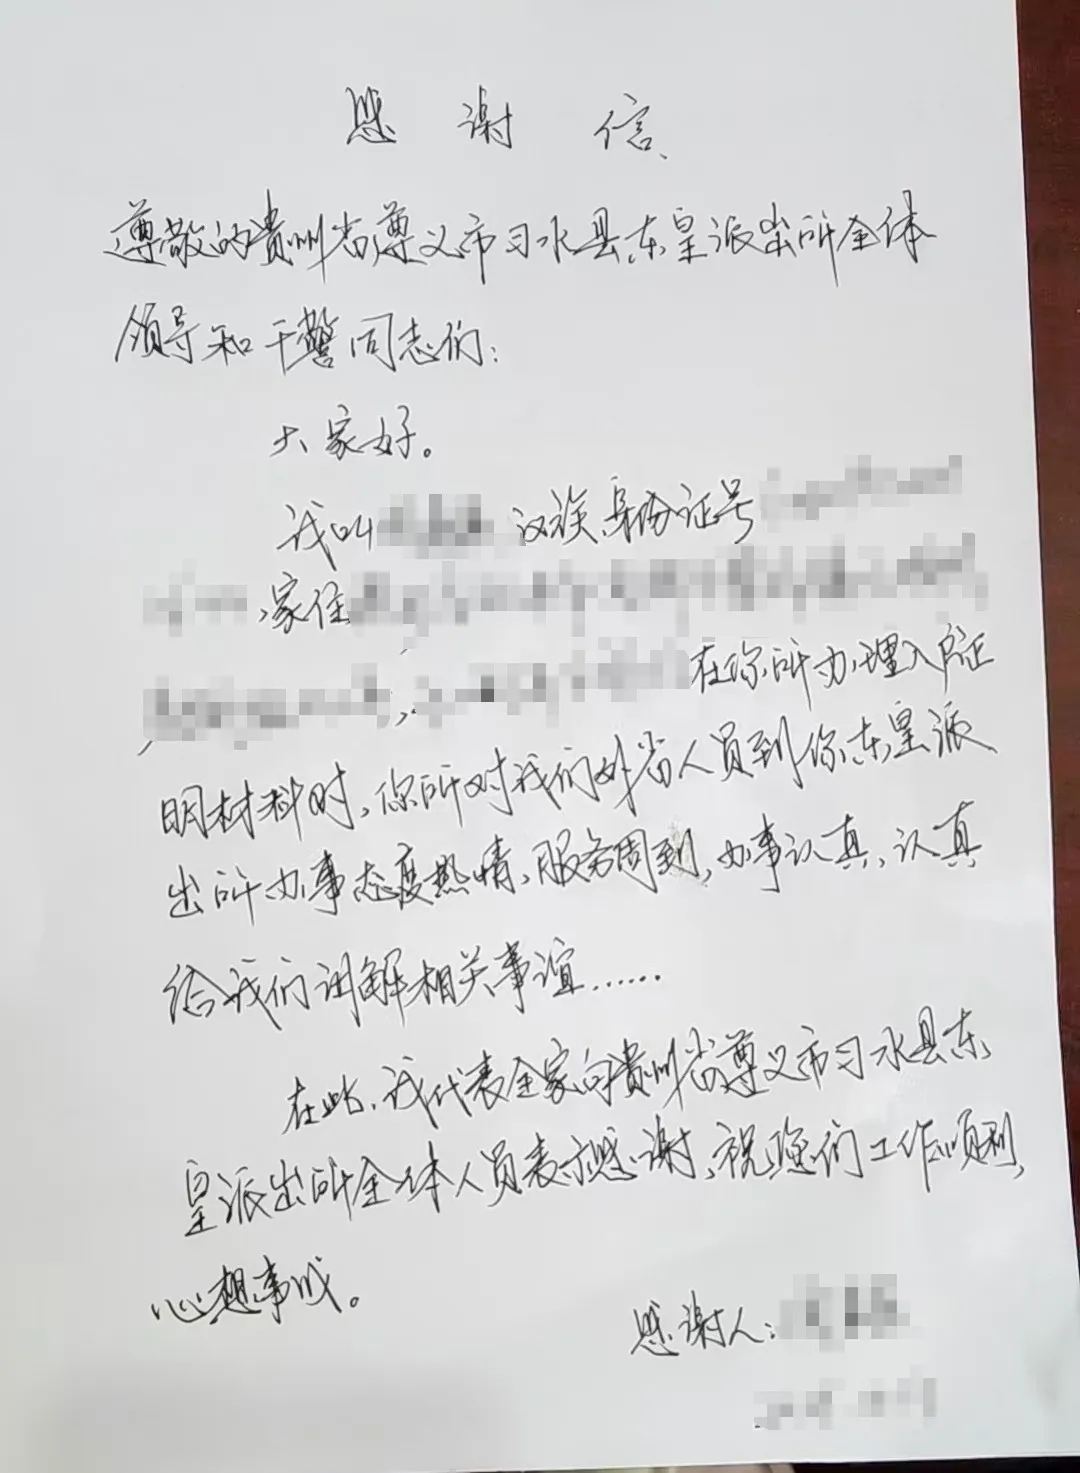 感谢信、
尊敬的贵州省遵义市习水县东皇派出所全体
领导和干警同志们：
大家好。
我叫 汉族、身份证号
、家住
在你所办理入户证
明材料时，你所对我们外省人员到你东皇派
出所办事态度热情、服务周到，办事认真、认真
给我们讲解相关事谊……
在此、我代表全家向贵州省遵义市习水县东
皇派出所全体人员表示感谢，祝您们工作顺利，
心想事成。
感谢人：